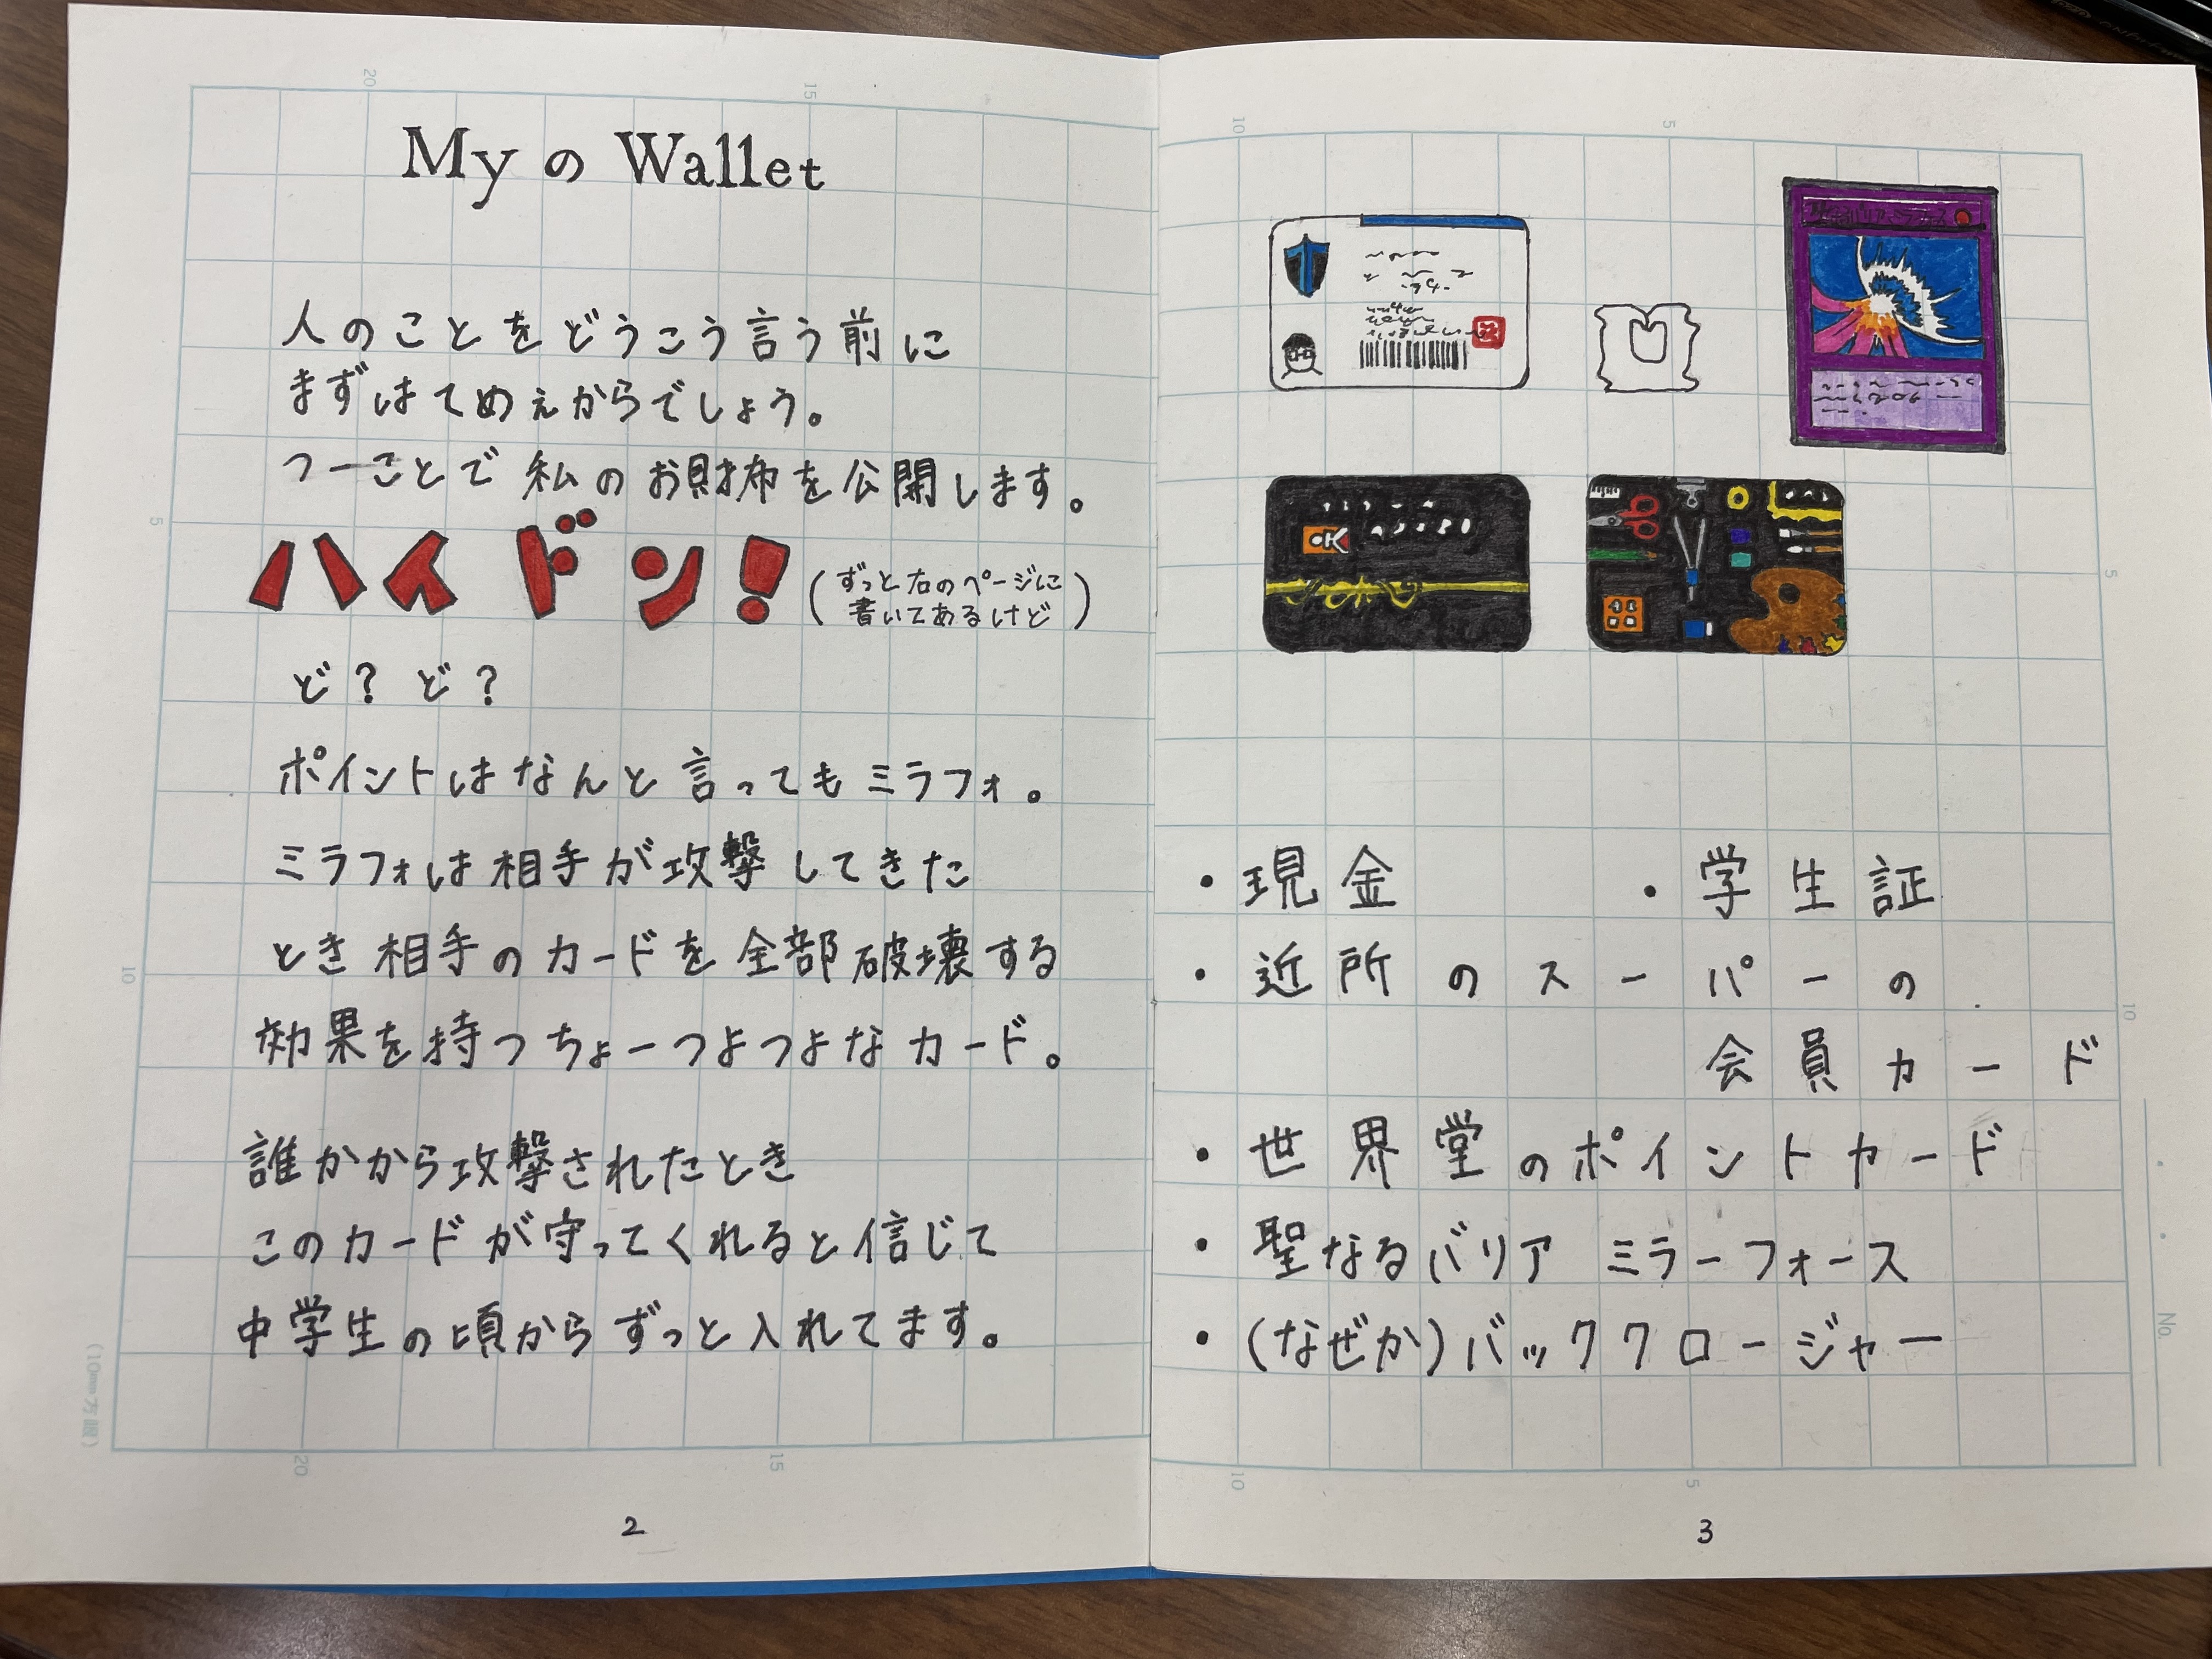 My の Wallet
人のことをどうこう言う前に
まずはてめぇからでしょう。
つーことで私のお財布を公開します。
ハイドン!
(ずっと右のページに
書いてあるけど)
ど?ど?
ポイントはなんと言ってもミラフォ。
ミラフォは相手が攻撃してきた
とき相手のカードを全部破壊する
効果を持つちょーつよつよなカード。
誰かから攻撃されたとき
このカードが守ってくれると信じて
中学生の頃からずっと入れてます。
2
OK
・現金 ・学生証
・近所のスーパーの
会員カード
・世界堂のポイントカード
・聖なるバリア ミラーフォース
・(なぜか)バッククロージャー
3
20
15
5
10
20
15
(10mm方眼)
10
5
5
10
10
5
No.